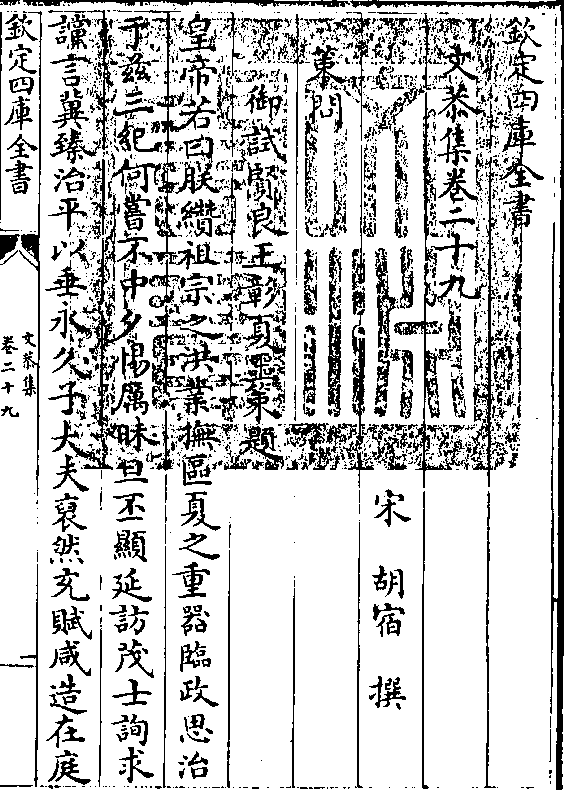 欽定四庫全書
文恭集卷二十九
宋 胡宿 撰
策問
御試賢良王彰夏噩策題
皇帝若曰朕纘祖宗之洪業撫區夏之重器臨政思治
于兹三紀何嘗不中夕惕厲昧旦丕顯延訪茂士詢求
讜言冀臻治平以垂永久子大夫裒然充賦咸造在庭
欽定四庫全書
文恭集
卷二十九
一